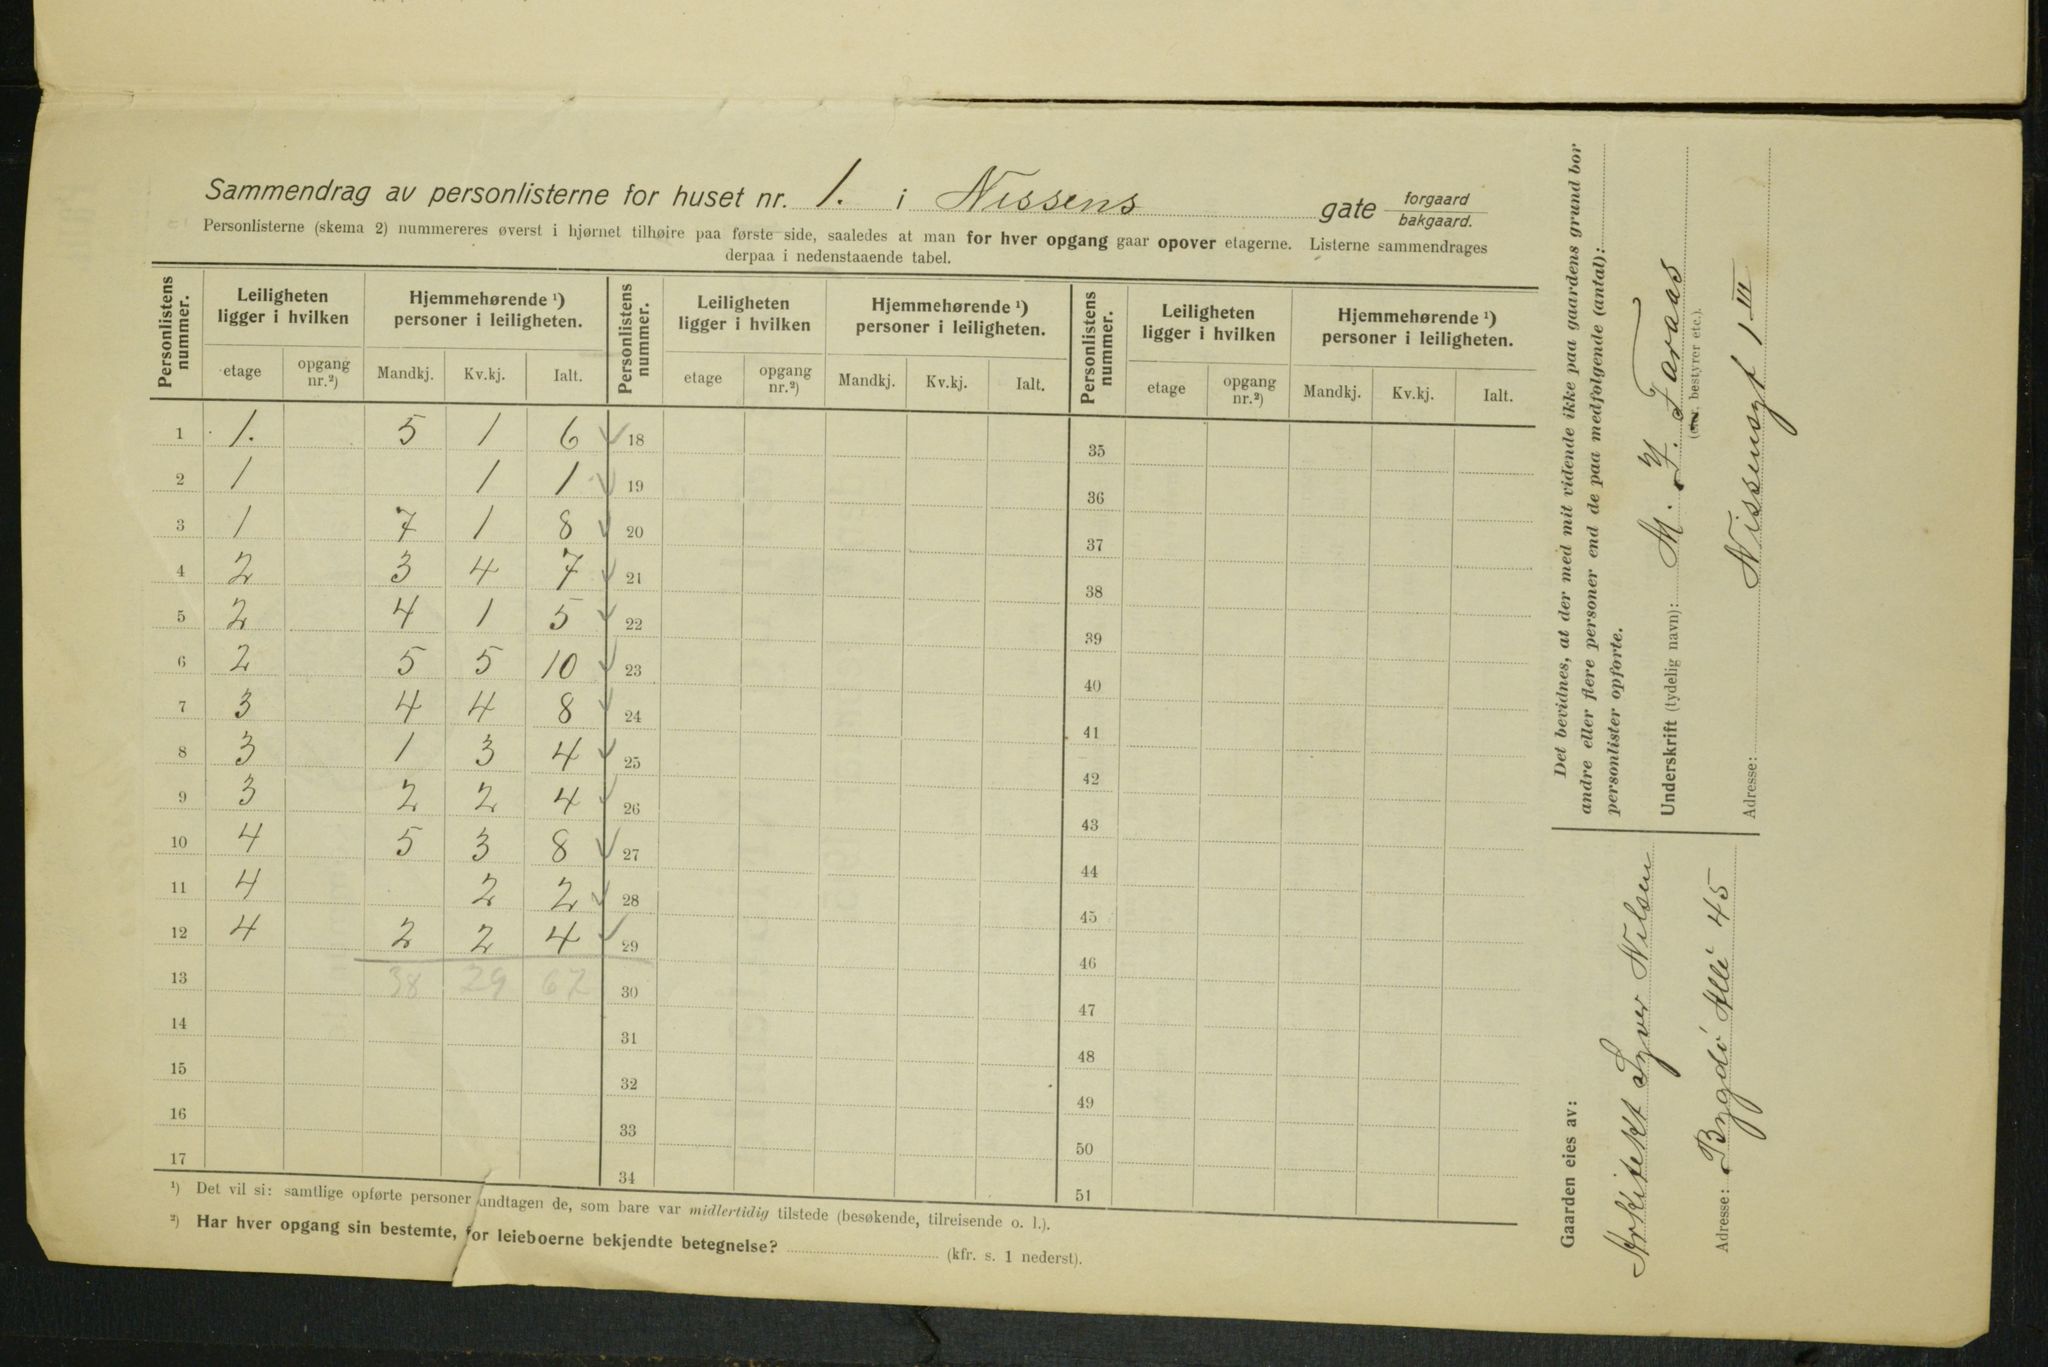 Sammendrag av personlisterne for huset nr. 1. i Nissens gate forgaard bakgaard.
Personlisterne (skema 2) nummereres øverst i hjørnet tilhøire paa første side, saaledes at man for hver opgang gaar opover etagerne. Listerne sammendrages
derpaa i nedenstaaende tabel.
Personlistens nummer. Leiligheten ligger i hvilken Hjemmehørende ¹) personer i leiligheten. Personlistens nummer. Leiligheten ligger i hvilken Hjemmehørende ¹) personer i leiligheten. Personlistens nummer. Leiligheten ligger i hvilken Hjemmehørende ¹) personer i leiligheten.
etage opgang nr.²) Mandkj. Kv.kj. Ialt. etage opgang nr.²) Mandkj. Kv.kj. Ialt. etage opgang nr.²) Mandkj. Kv.kj. Ialt.
1 1. 5 1 6 18 35
2 1 1 1 19 36
3 1 7 1 8 20 37
4 2 3 4 7 21 38
5 2 4 1 5 22 39
6 2 5 5 10 23 40
7 3 4 4 8 24 41
8 3 1 3 4 25 42
9 3 2 2 4 26 43
10 4 5 3 8 27 44
11 4 2 2 28 45
12 4 2 2 4 29 46
13 38 29 67 30 47
14 31 48
15 32 49
16 33 50
17 34 51
¹) Det vil si: samtlige opførte personer undtagen de, som bare var midlertidig tilstede (besøkende, tilreisende o. l.).
²) Har hver opgang sin bestemte, for leieboerne bekjendte betegnelse? (kfr. s. 1 nederst).
Det bevidnes, at der med mit vidende ikke paa gaardens grund bor
andre eller flere personer end de paa medfølgende (antal):
personlister opførte.
Underskrift (tydelig navn): M. F. Faraas
(eier, bestyrer etc.).
Adresse: Nissensgt 1 III
Gaarden eies av:
Arkitekt Syver Nilsen
Adresse: Bygdö Allé 45